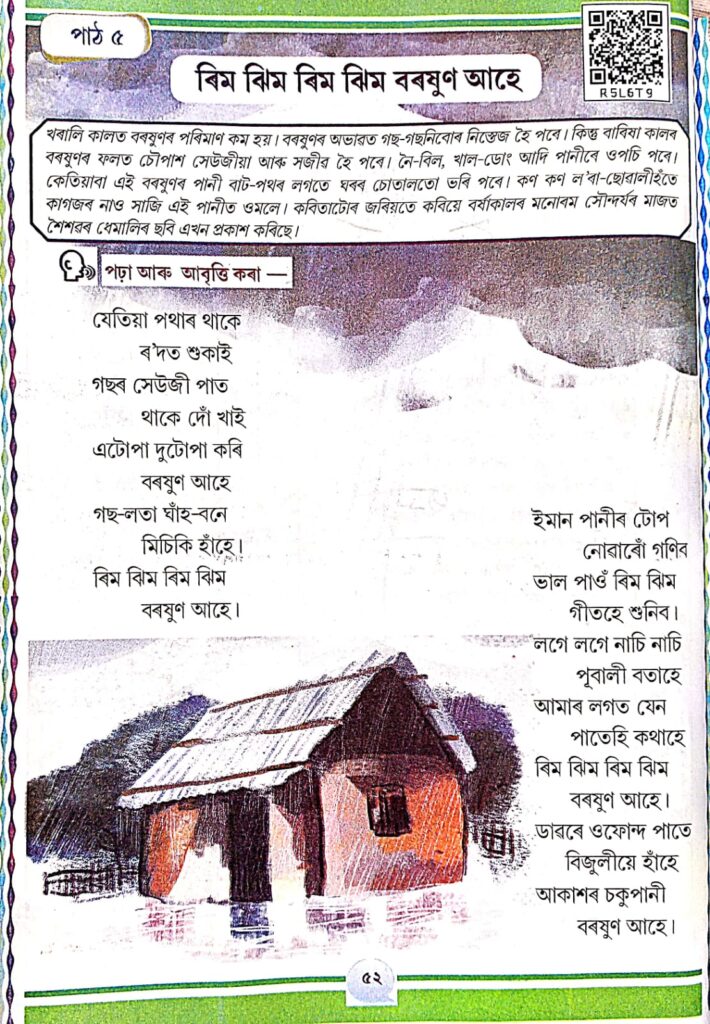 পাঠ ৫
R5L6T9
ৰিম ঝিম ৰিম ঝিম বৰষুণ আহে
খৰালি কালত বৰষুণৰ পৰিমাণ কম হয়। বৰষুণৰ অভাৱত গছ-গছনিবোৰ নিস্তেজ হৈ পৰে। কিন্তু বাৰিষা কালৰ
বৰষুণৰ ফলত চৌপাশ সেউজীয়া আৰু সজীৱ হৈ পৰে। নৈ-বিল, খাল-ডোং আদি পানীৰে ওপচি পৰে।
কেতিয়াবা এই বৰষুণৰ পানী বাট-পথৰ লগতে ঘৰৰ চোতালতো ভৰি পৰে। কণ কণ ল'ৰা-ছোৱালীহঁতে
কাগজৰ নাও সাজি এই পানীত ওমলে। কবিতাটোৰ জৰিয়তে কবিয়ে বৰ্ষাকালৰ মনোৰম সৌন্দৰ্যৰ মাজত
শৈশৱৰ ধেমালিৰ ছবি এখন প্ৰকাশ কৰিছে।
পঢ়া আৰু আবৃত্তি কৰা —
যেতিয়া পথাৰ থাকে
ৰ'দত শুকাই
গছৰ সেউজী পাত
থাকে দোঁ খাই
এটোপা দুটোপা কৰি
বৰষুণ আহে
গছ-লতা ঘাঁহ-বনে
মিচিকি হাঁহে।
ৰিম ঝিম ৰিম ঝিম
বৰষুণ আহে।
ইমান পানীৰ টোপ
নোৱাৰোঁ গণিব
ভাল পাওঁ ৰিম ঝিম
গীতহে শুনিব।
লগে লগে নাচি নাচি
পূবালী বতাহে
আমাৰ লগত যেন
পাতেহি কথাহে
ৰিম ঝিম ৰিম ঝিম
বৰষুণ আহে।
ডাৱৰে ওফোন্দ পাতে
বিজুলীয়ে হাঁহে
আকাশৰ চকুপানী
বৰষুণ আহে।
৫২